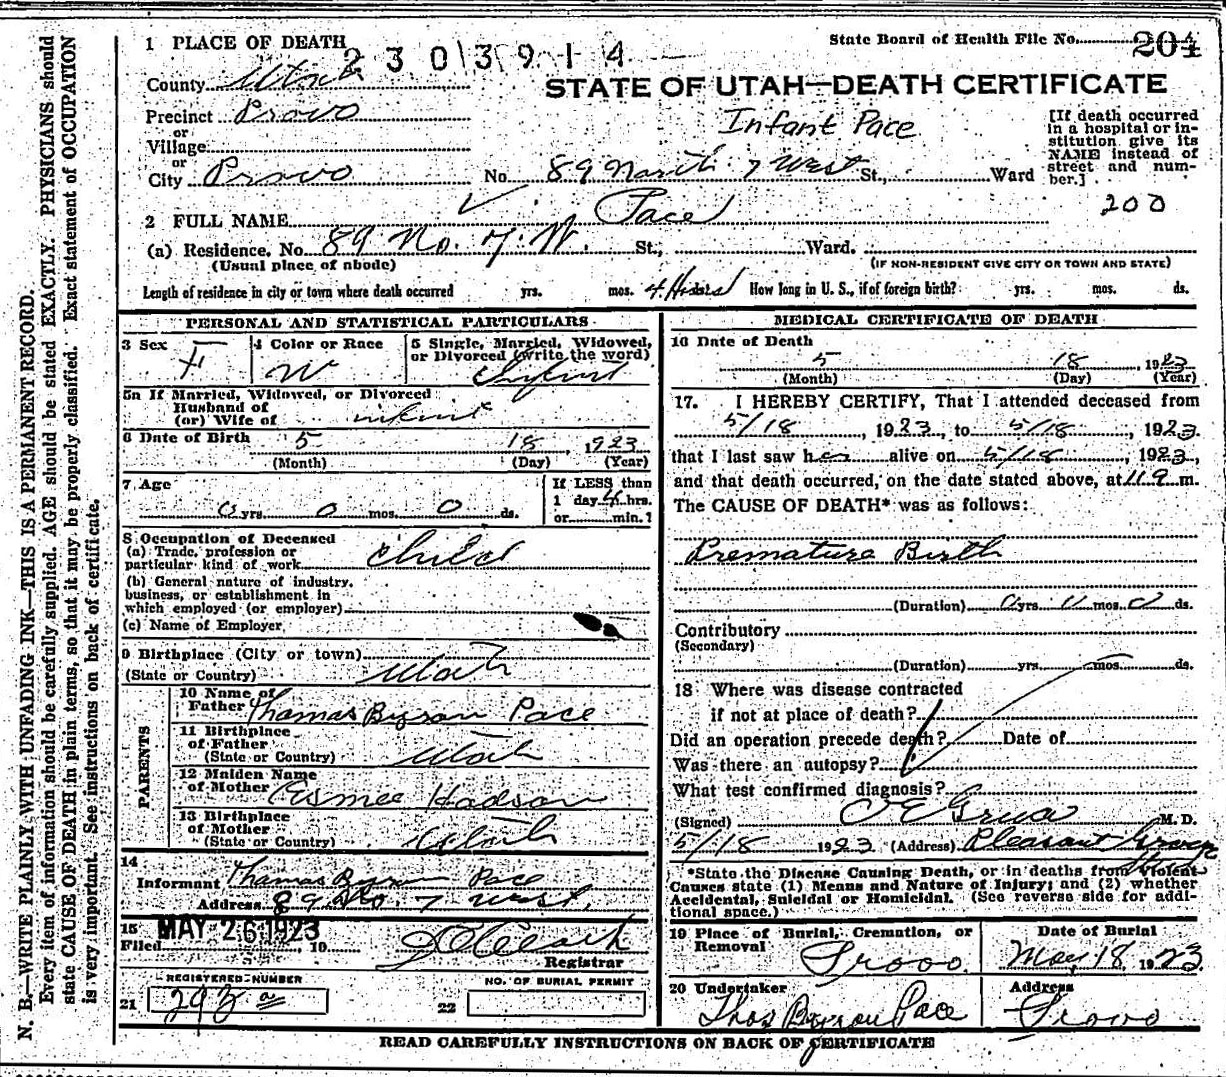 1 PLACE OF DEATH
2303914
State Board of Health File No. 204
County Utah
STATE OF UTAH—DEATH CERTIFICATE
Precinct Provo
Infant Pace
or
Village
or
City Provo No. 89 North 7 West St., Ward
[If death occurred
in a hospital or in-
stitution give its
NAME instead of
street and num-
ber.]
200
2 FULL NAME Pace
(a) Residence, No. 89 No. 7 W. St., Ward.
(Usual place of abode) (IF NON-RESIDENT GIVE CITY OR TOWN AND STATE)
Length of residence in city or town where death occurred yrs. mos. 4 Hours How long in U. S., if of foreign birth? yrs. mos. ds.
PERSONAL AND STATISTICAL PARTICULARS
3 Sex F
4 Color or Race W
5 Single, Married, Widowed,
or Divorced (write the word)
Infant
5a If Married, Widowed, or Divorced
Husband of
(or) Wife of infant
6 Date of Birth 5 18, 1923
(Month) (Day) (Year)
7 Age 0 yrs. 0 mos. 0 ds.
If LESS than
1 day 4 hrs.
or min.?
8 Occupation of Deceased
(a) Trade, profession or
particular kind of work Child
(b) General nature of industry,
business, or establishment in
which employed (or employer)
(c) Name of Employer
9 Birthplace (City or town)
(State or Country) Utah
PARENTS
10 Name of
Father Thomas Byron Pace
11 Birthplace
of Father
(State or Country) Utah
12 Maiden Name
of Mother Esmee Hudson
13 Birthplace
of Mother
(State or Country) Utah
14
Informant Thomas Byron Pace
Address 89 No. 7 West.
15
Filed MAY 26 1923 19
Registrar
REGISTERED NUMBER
21
NO. OF BURIAL PERMIT
22
MEDICAL CERTIFICATE OF DEATH
16 Date of Death
5 18, 1923
(Month) (Day) (Year)
17. I HEREBY CERTIFY, That I attended deceased from
5/18, 1923, to 5/18, 1923.
that I last saw her alive on 5/18, 1923,
and that death occurred, on the date stated above, at 11 a m.
The CAUSE OF DEATH* was as follows:
Premature Birth
(Duration) 0 yrs. 0 mos. 0 ds.
Contributory
(Secondary)
(Duration) yrs. mos. ds.
18 Where was disease contracted
if not at place of death?
Did an operation precede death? Date of
Was there an autopsy?
What test confirmed diagnosis?
(Signed) O E Grua M. D.
5/18 1923 (Address) Pleasant Grove
Utah
*State the Disease Causing Death, or in deaths from Violent
Causes state (1) Means and Nature of Injury; and (2) whether
Accidental, Suicidal or Homicidal. (See reverse side for addi-
tional space.)
19 Place of Burial, Cremation, or
Removal
Provo.
Date of Burial
May 18 1923
20 Undertaker
Thos Byron Pace
Address
Provo
READ CAREFULLY INSTRUCTIONS ON BACK OF CERTIFICATE
N. B.—WRITE PLAINLY WITH UNFADING INK—THIS IS A PERMANENT RECORD.
Every item of information should be carefully supplied. AGE should be stated EXACTLY. PHYSICIANS should
state CAUSE OF DEATH in plain terms, so that it may be properly classified. Exact statement of OCCUPATION
is very important. See instructions on back of certificate.